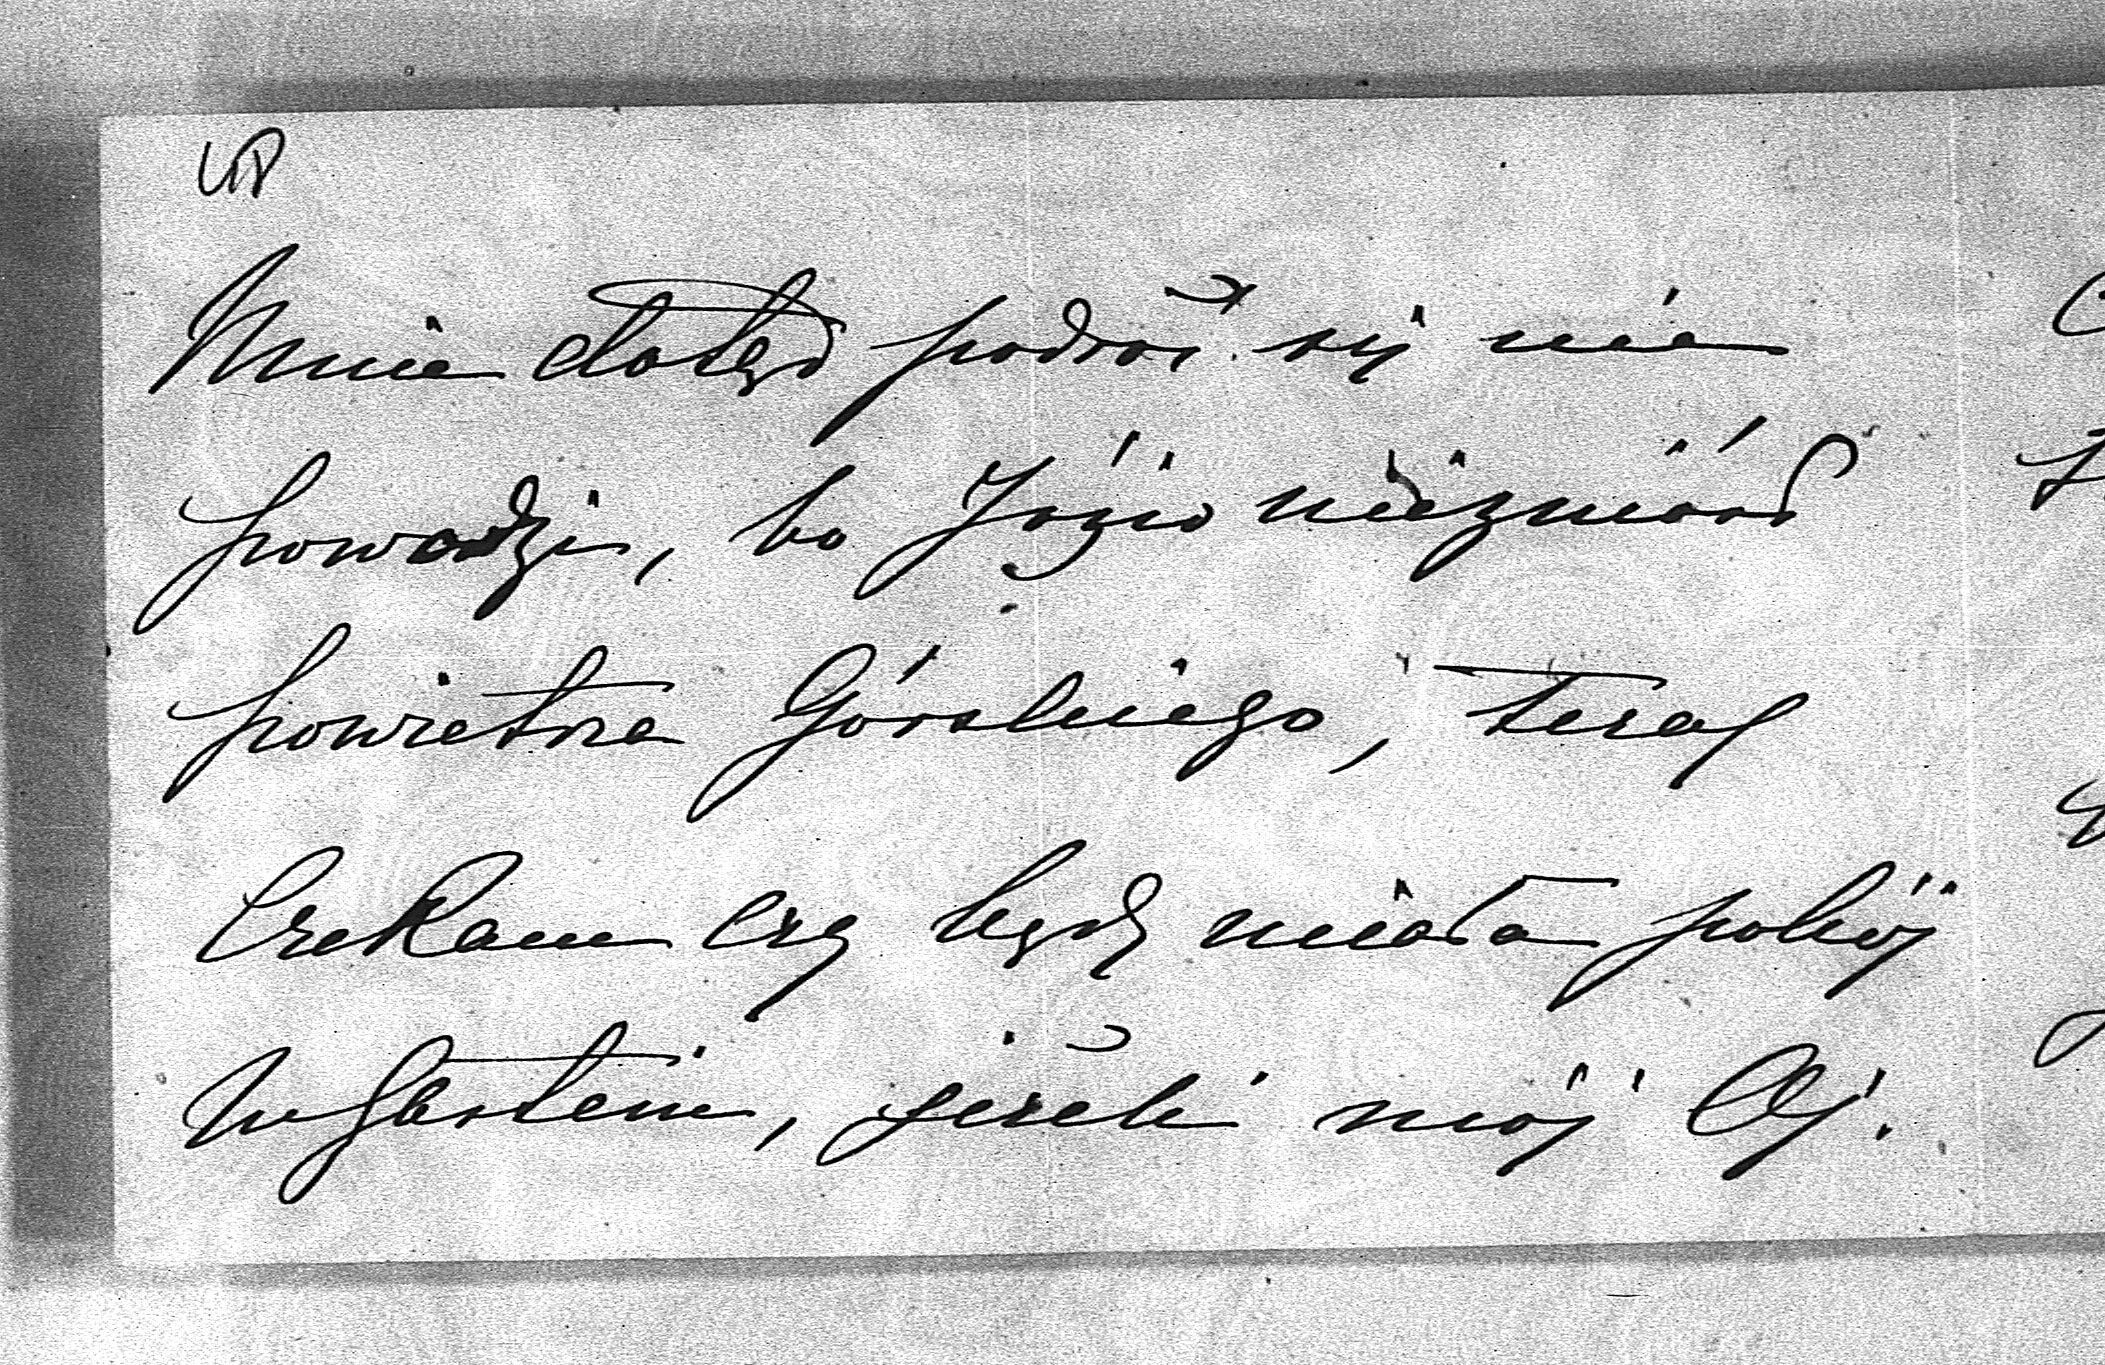 Mnie dotąd podróż się nie
powodzi, bo Józio nieznióсł
powietrza Górskiego, teraz
Czekam czy będę miała pokój
w Gastein, jeżeli mój Oj.